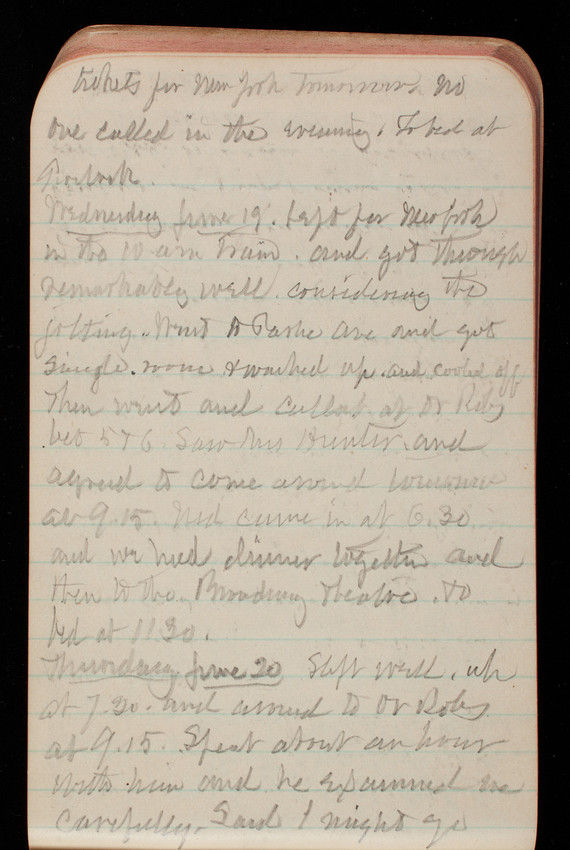 tickets for New York tomorrow. No
one called in the evening. To bed at
Wednesday June 19. Left for New York
in the 10 am train. and got through
remarkably well. considering the
jolting. Went to Parke Ave and got
single room & washed up and cooled off
Then went and called at Dr
bet 5 & 6. Saw Mrs Hunter and
agreed to come around tomorrow
at 9.15. Ned came in at 6.30
and we had dinner together and
then to the Broadway Theatre. to
bed at 11.30.
Thursday June 20 Slept well. up
at 7.30. and around to Dr
at 9.15. Spent about an hour
with him and he examined me
carefully. Said I might go